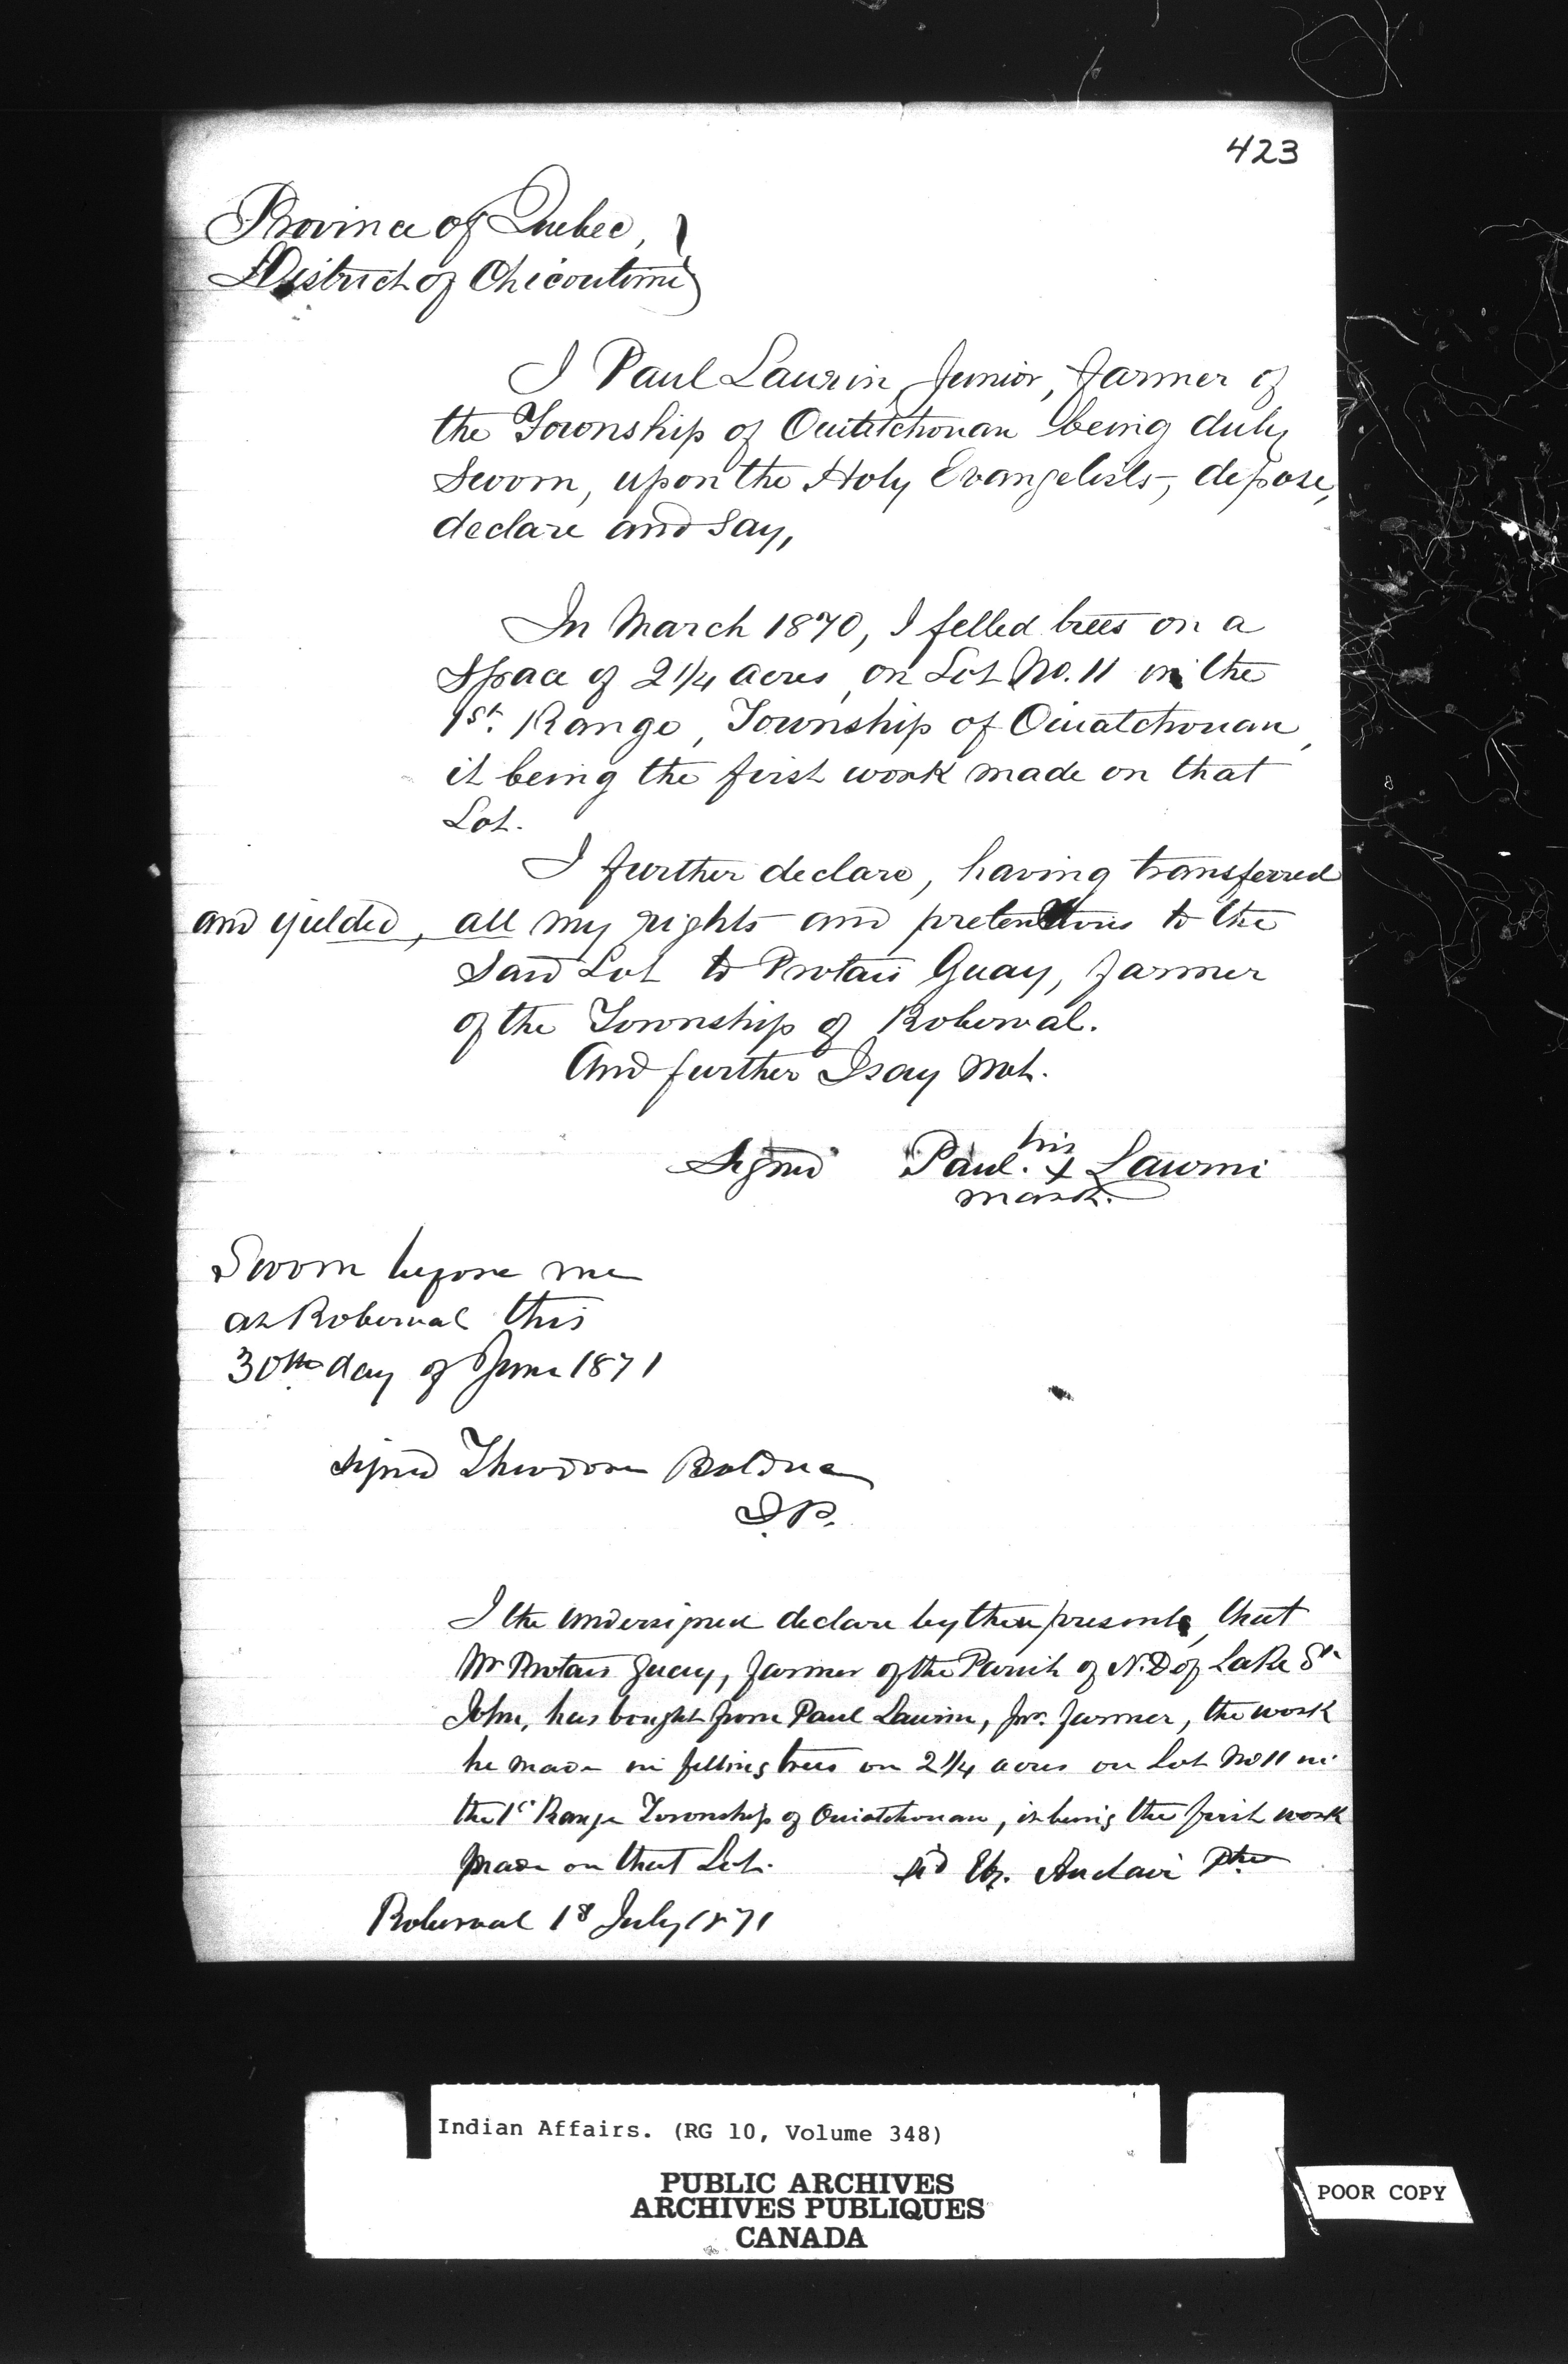 423
Province of Quebec, }
District of Chicoutimi }
I Paul Laurin, Junior, farmer of
the Township of Ouititchouan being duly
Sworn, upon the Holy Evangelists, depose,
declare and say,
In March 1870, I felled trees on a
Space of 2 1/4 acres, on Lot No. 11 in the
1st. Range, Township of Ouiatchouan,
it being the first work made on that
Lot.
I further declare, having transferred
and yielded, all my rights and pretentions to the
Said Lot to Protais Guay, farmer
of the Township of Roberval.
And further I say not.
his
Signed "Paul. x Laurin
mark.
Sworn before me
at Roberval this
30th day of June 1871
signed Theodore Bolduc
J.P.
I the undersigned declare by these presents, that
Mr Protais Guay, farmer of the Parish of N.D of Lake St
John, has bought from Paul Laurin, Jnr. farmer, the work
he made in felling trees on 2 1/4 acres on Lot No 11 in
the 1st Range Township of Ouiatchouan, it being the first work
made on that Lot.
sd Ths. Auclair Ptre
Roberval 1st July 1871
Indian Affairs. (RG 10, Volume 348)
PUBLIC ARCHIVES
ARCHIVES PUBLIQUES
CANADA
POOR COPY